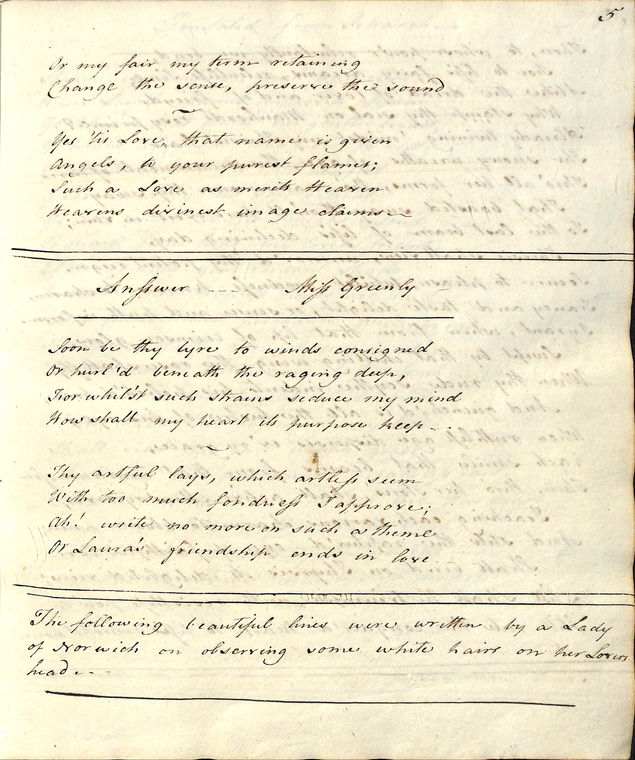 5
Or my fair my term retaining
Change the sense, preserve the sound
Yes 'tis Love, that name is given
Angels, to your purest flames;
Such a Love as merits Heaven
Heavens divinest image claims
Answer --- Miss Greenly
Soon be thy lyre to winds consigned
Or hurl'd beneath the raging deep,
For whilst such strains seduce my mind
How shall my heart its purpose keep -
Thy artful lays, which artless seem
With too much fondness I approve;
Ah! write no more on such a theme
Or Laura's friendship ends in love
The following beautiful lines were written by a Lady
of Norwich on observing some white hairs on her Lovers
head. --